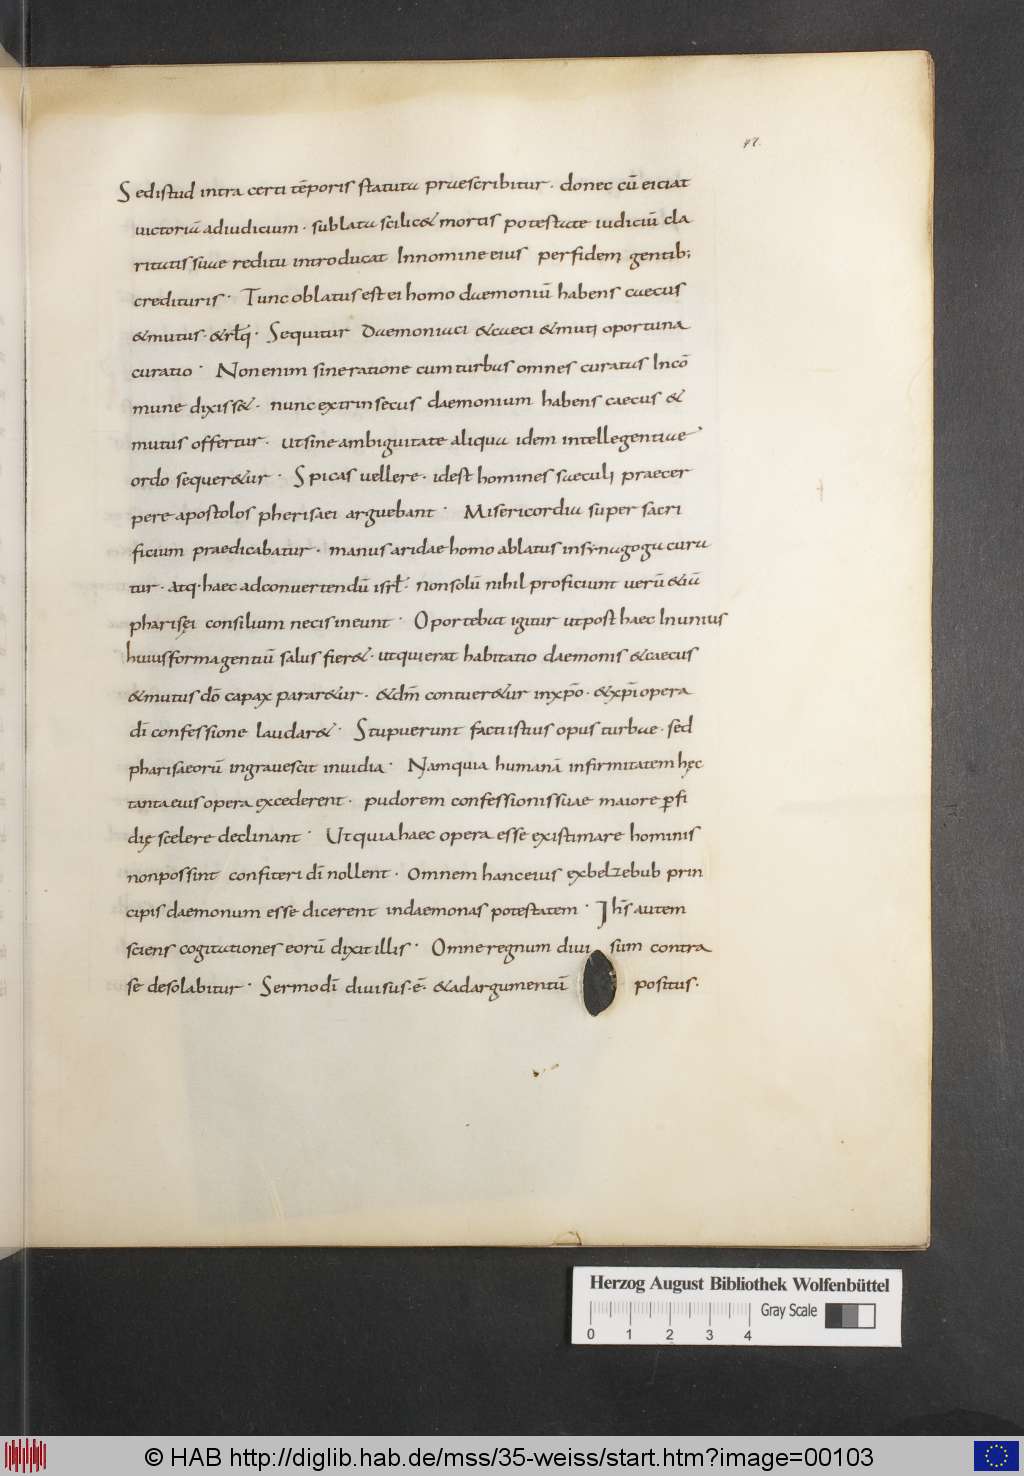 47.
Sed istud intra certi tẽporis statuta praescribitur · donec cũ eiciat
victoriã ad iudicium · sublata scilic& mortis potestate iudiciũ cla
ritatis suae reditu introducat In nomine eius per fidem gentib;
credituris · Tunc oblatus est ei homo daemoniũ habens caecus
& mutus · & rl̃q · Sequitur Daemoniaci & caeci & muti oportuna
curatio · Non enim sine ratione cum turbas omnes curatas In cõ
mune dixiss& · nunc extrinsecus daemonium habens caecus &
mutus offertur · ut sine ambiguitate aliqua idem intellegentiae
ordo sequer&ur · Spicas vellere · id est homines saeculi praecer
pere apostolos pherisaei arguebant · Misericordia super sacri
ficium praedicabatur · manus aridae homo ablatus in synagoga cura
tur · Atq · haec ad convertendũ isrl̃ · non solũ nihil proficiunt verũ &iã
pharisęi consilium necis ineunt · Oportebat igitur ut post haec In unius
huius forma gentiũ salus fier& · ut qui erat habitatio daemonis & caecus
& mutus dõ capax parar&ur · & dm̃ contuer&ur in xp̃o · & xp̃i opera
dĩ confessione laudar& · Stupuerunt facti istius opus turbae · sed
pharisaeorũ ingravescit invidia · Nam quia humanã infirmitatem hęc
tanta eius opera excederent · pudorem confessionis suae maiore ꝑfi
dię scelere declinant · Ut quia haec opera esse existimare hominis
non possint confiteri dĩ nollent · Omnem hanc eius ex belzebub prin
cipis daemonum esse dicerent in daemonas potestatem · Ih̃s autem
sciens cogitationes eorũ dixit illis · Omne regnum divi sum contra
se desolabitur · Sermo dĩ divisus · ẽ · & ad argumentũ positus ·
Herzog August Bibliothek Wolfenbüttel
0 1 2 3 4 Gray Scale
© HAB http://diglib.hab.de/mss/35-weiss/start.htm?image=00103